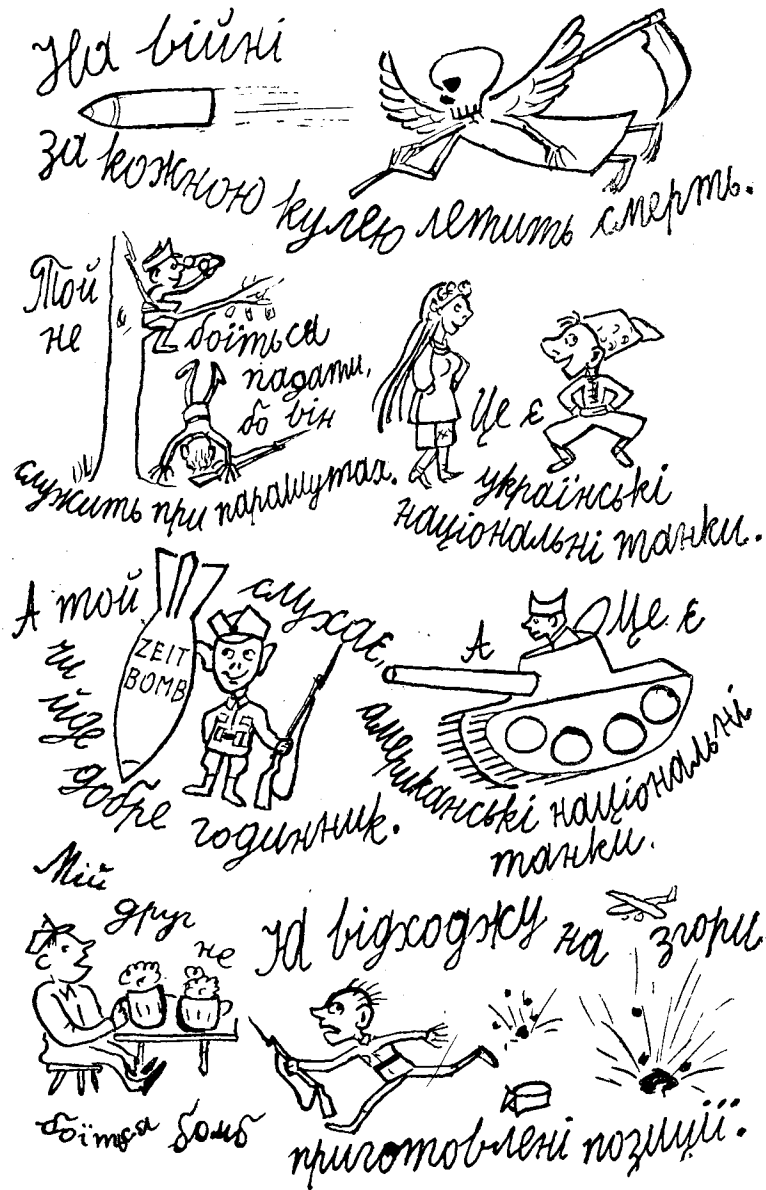 На війні
за кожною кулею летить смерть.
Той
не
боїться
падати,
бо він
служить при парашутах.
Це є
українські
національні танки.
А той
слухає,
чи
йде
добре годинник.
ZEIT
BOMB
А
Це є
американські національні
танки.
Мій
друг
не
боїться бомб
Я відходжу на згори
приготовлені позиції.